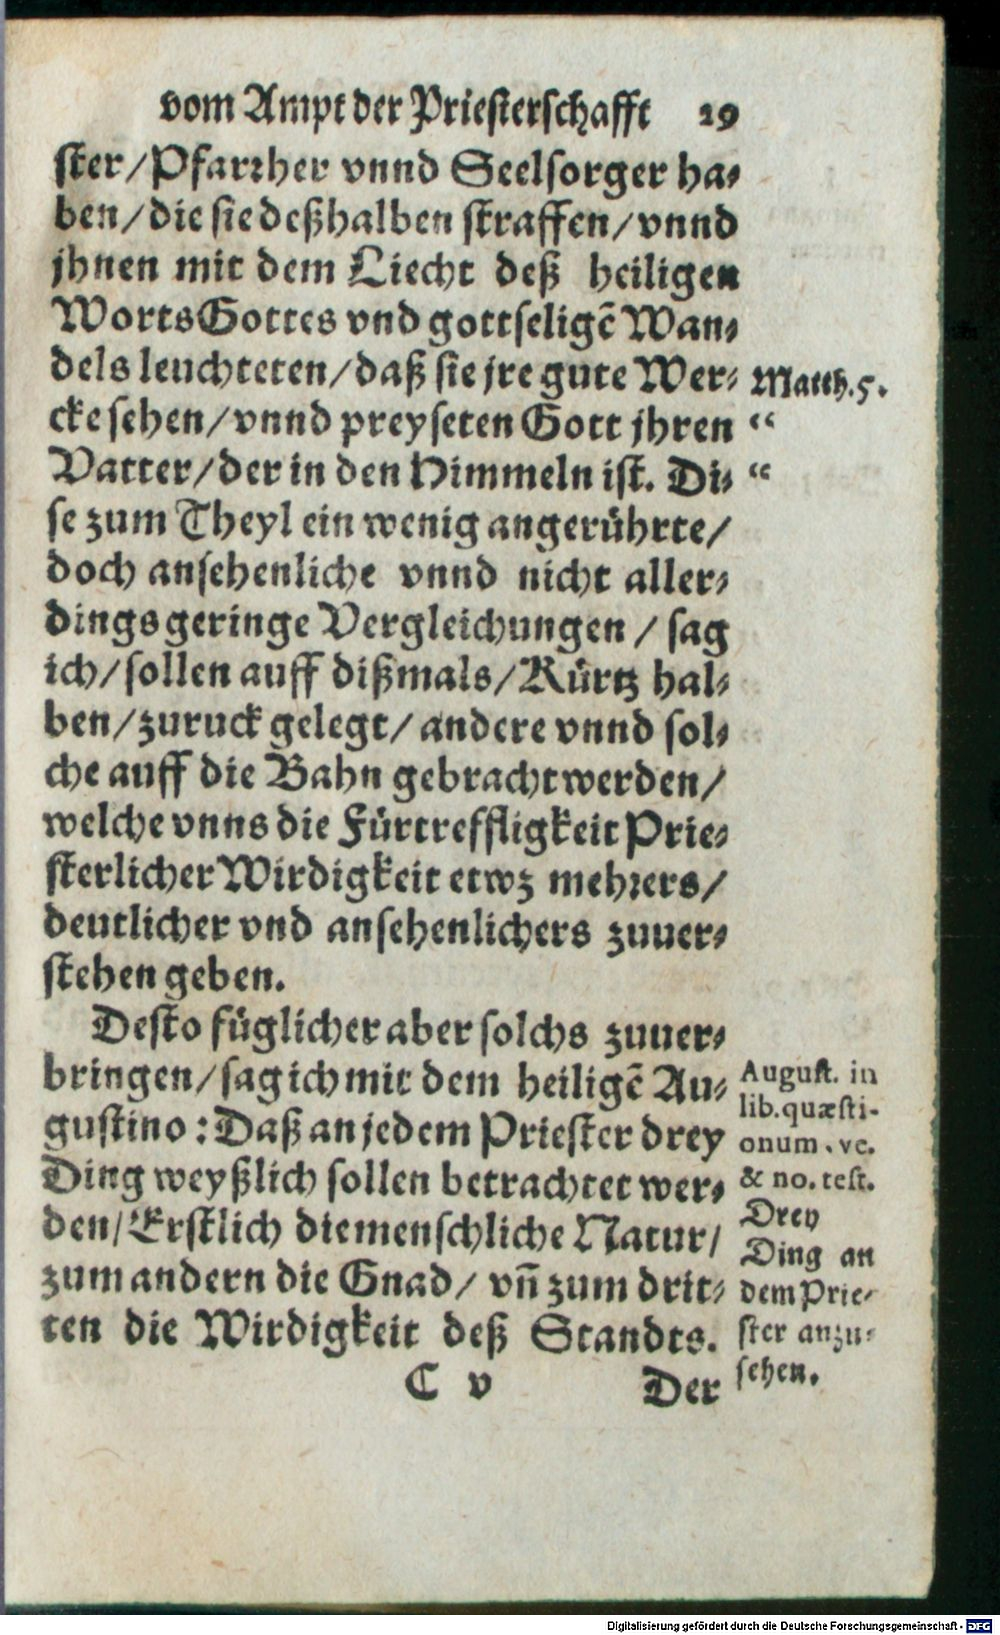 vom Ampt der Priesterschafft 29
ster/Pfarrher vnnd Seelsorger ha-
ben/die sie deßhalben straffen/vnnd
jhnen mit dem Liecht deß heiligen
Worts Gottes vnd gottseligē Wan-
dels leuchteten/daß sie jre gute Wer-
cke sehen/vnnd preyseten Gott jhren
Vatter/der in den Himmeln ist. Di-
se zum Theyl ein wenig angerührte/
doch ansehenliche vnnd nicht aller-
dings geringe Vergleichungen / sag
ich/sollen auff dißmals/Kürtz hal-
ben/zuruck gelegt/andere vnnd sol-
che auff die Bahn gebracht werden/
welche vnns die Fürtreffligkeit Prie-
sterlicher Wirdigkeit etwz mehrers/
deutlicher vnd ansehenlichers zuuer-
stehen geben.
Desto füglicher aber solchs zuuer-
bringen/sag ich mit dem heiligē Au-
gustino: Daß an jedem Priester drey
Ding weyßlich sollen betrachtet wer-
den/Erstlich die menschliche Natur/
zum andern die Gnad/ vñ zum drit-
ten die Wirdigkeit deß Standts.
C v Der
Matth.5.
“
“
August. in
lib.quæsti-
onum. ve.
& no. test.
Drey
Ding an
dem Prie-
ster anzu-
sehen.
Digitalisierung gefördert durch die Deutsche Forschungsgemeinschaft - DFG